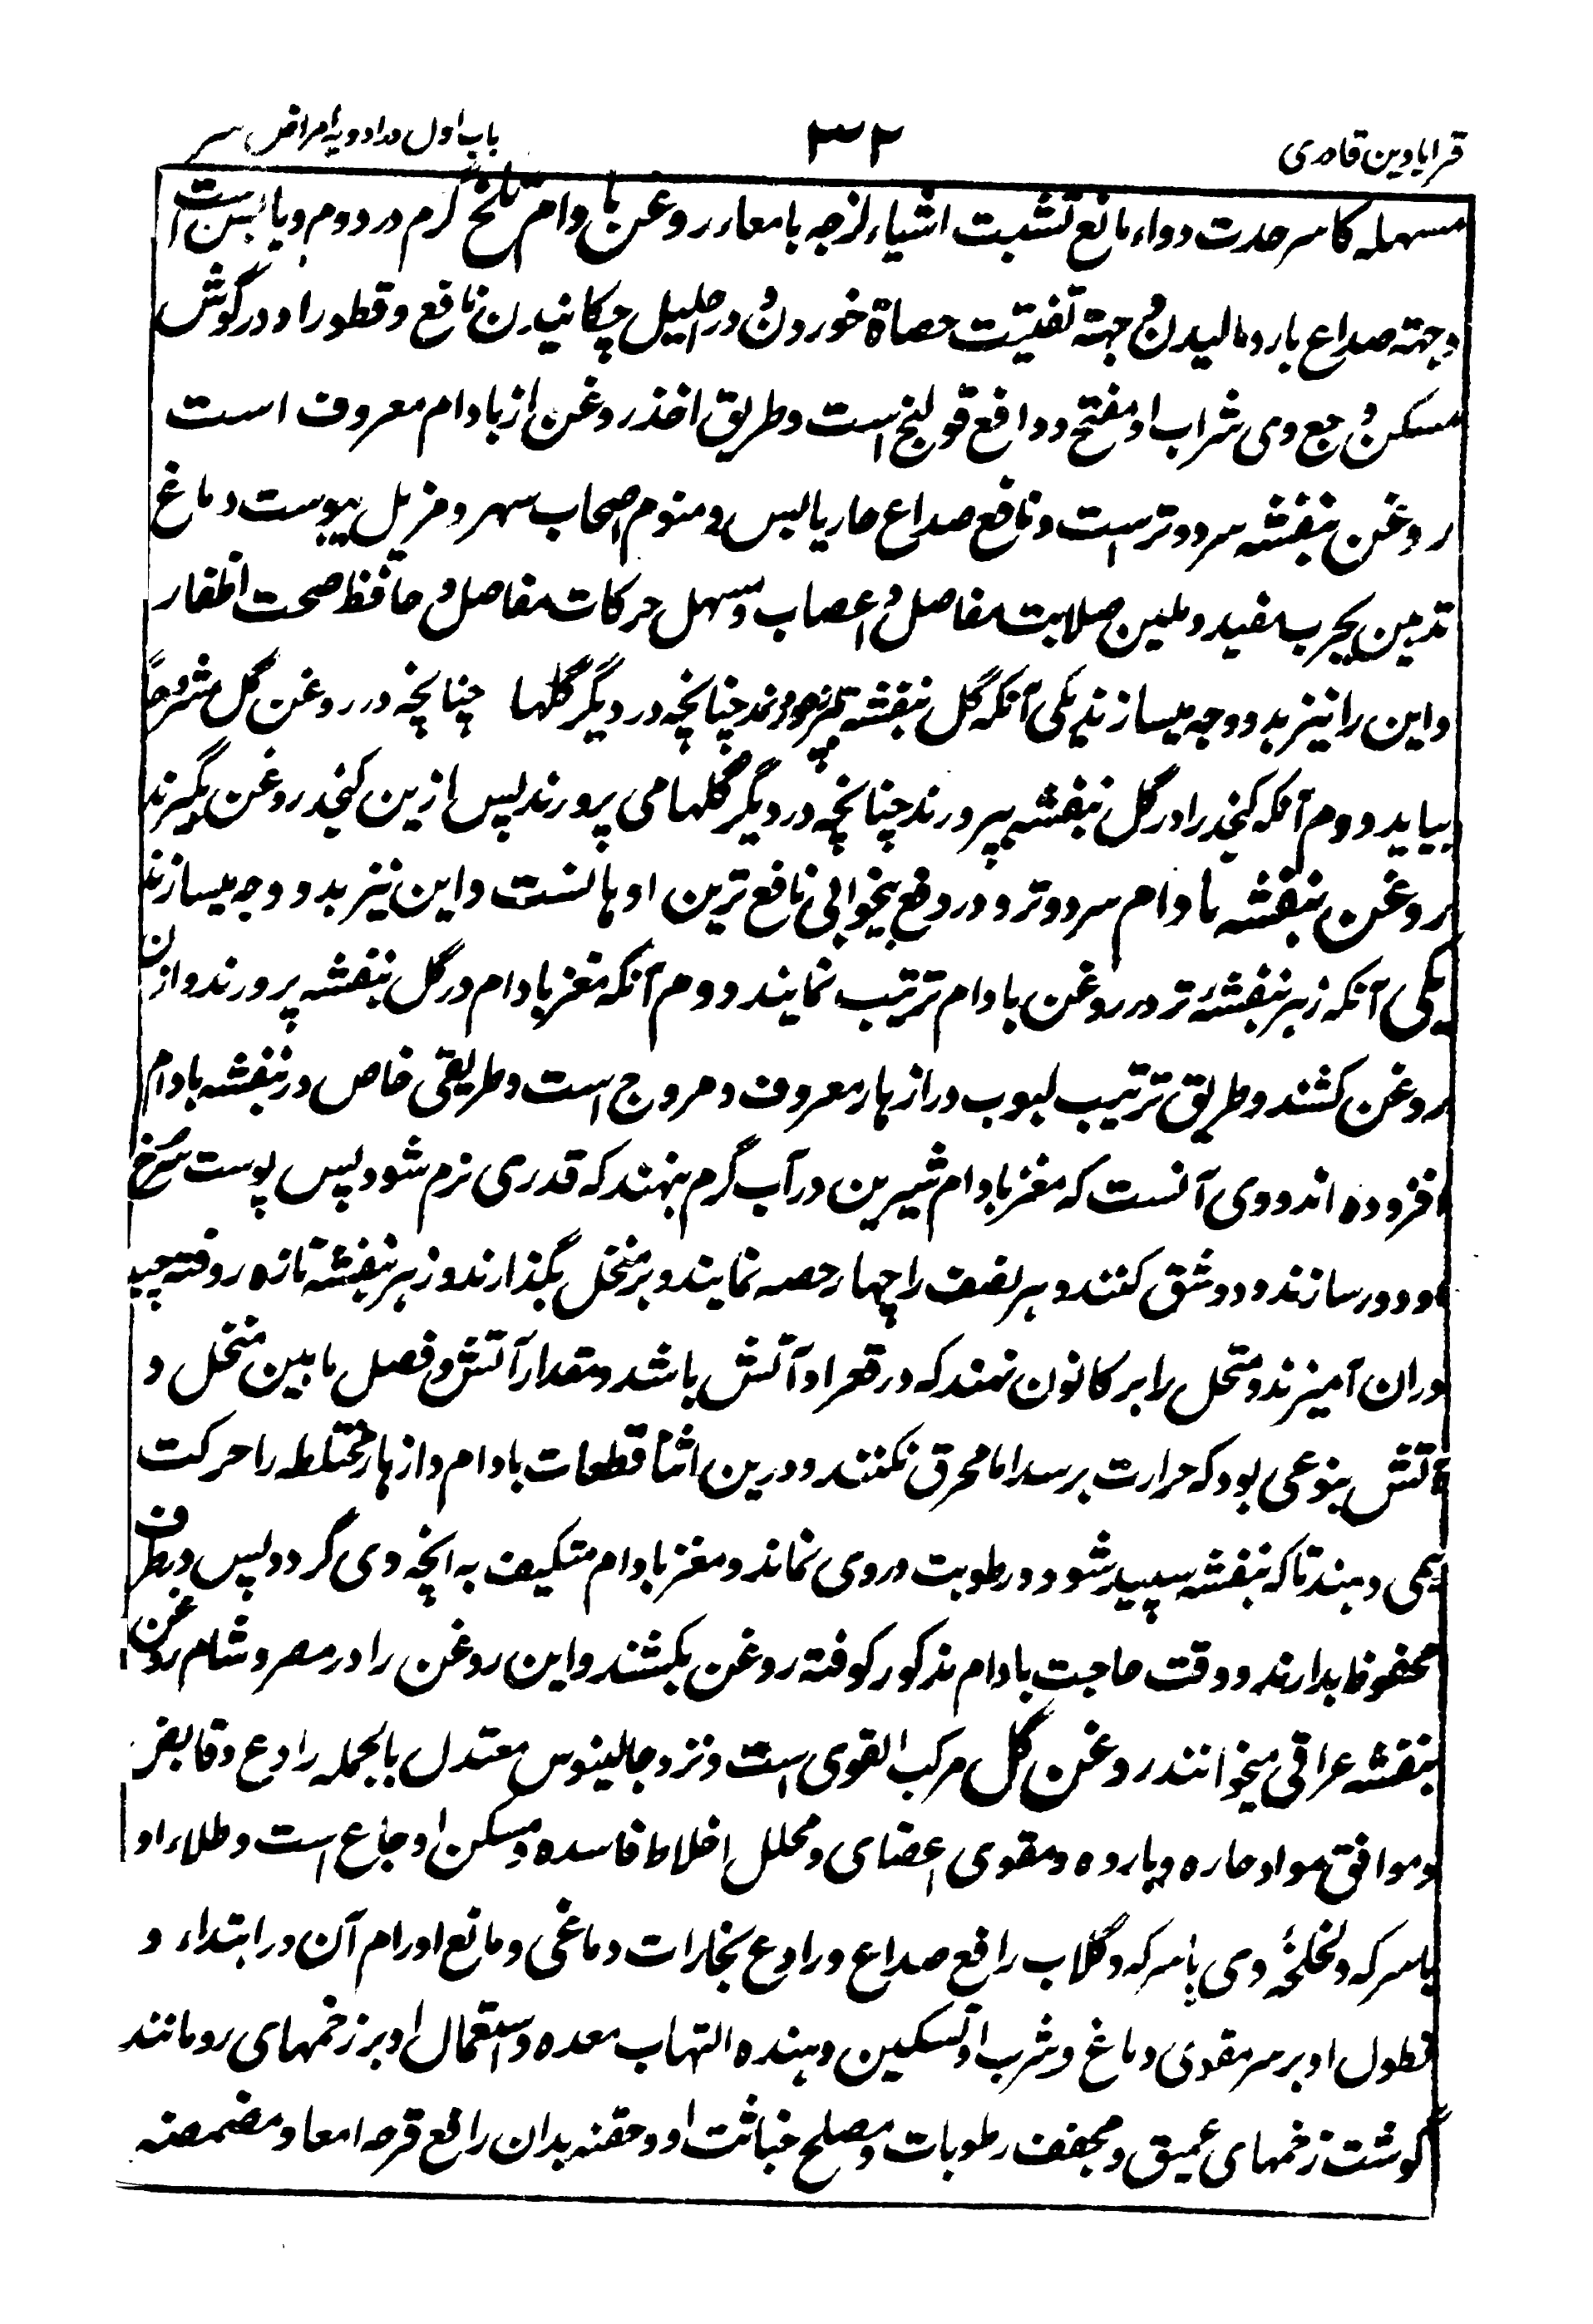 قرابادین قادری
۳۲
باب اول در ادویه امراض سر
مسهله کاسر حدت دواء مانع تشبث اشیاء لزجه بامعاء روغن بادام تلخ گرم در دوم و یابس است
و جهته صداع بارد مالیدن و جهته تفتیت حصاة خوردن و در احلیل چکانیدن نافع و قطور او در گوش
مسکن وجع وی شراب او مفتح و دافع قولنج است و طریق اخذ روغن از بادام معروف است
روغن بنفشه سرد و تر است و نافع صداع حار یابس و منوم اصحاب سهر و مزیل یبوست دماغ
تدهین بجرب مفید و ملین صلابت مفاصل و اعصاب و مسهل حرکات مفاصل و حافظ صحت اظفار
و این را نیز بدو وجه میسازند یکی آنکه گل بنفشه چنانچه در دیگر گلها چنانچه در روغن گل مشروحاً
بیاید دوم آنکه کنجد را در گل بنفشه بپرورند چنانچه در دیگر گلها می پرورند پس ازین کنجد روغن بگیرند
روغن بنفشه بادام سرد و تر و در دفع بیخوابی نافع ترین ادهانست و این نیز بدو وجه میسازند
یکی آنکه زهر بنفشهٔ تر در روغن بادام ترتیب نمایند دوم آنکه مغز بادام در گل بنفشه پرورند و ازان
روغن کشند و طریق ترتیب لبوب در ازهار معروف و مروج است و طریقی خاص در بنفشه بادام
افزوده اند و وی آنست که مغز بادام شیرین در آب گرم بنهند که قدری نرم شود پس پوست سرخ
او دور سازند و دو شق کنند و هر نصف را چهار حصه نمایند و بر منخل بگذارند و زهر بنفشه تازه روفته چید
دران آمیزند و منخل را بر کانون نهند که در قعر او آتش باشد و مقدار آتش و فصل مابین منخل و
آتش بنوعی بود که حرارت برسد اما محرق نکنند و درین اثنا قطعات بادام و ازهار مختلطه را حرکت
همی دهند تا که بنفشه سپید شود و رطوبت در وی نماند و مغز بادام متکیف به آنچه وی گردد پس در ظرف
محفوظ بدارند و وقت حاجت بادام مذکور کوفته روغن بکشند و این روغن را در مصر و شام روغن
بنفشه عراقی میخوانند روغن گل مرکب القوی است و نزد جالینوس معتدل بالجمله رادع و قابض
و موافق مواد حاره و بارده و مقوی اعضای و محلل اخلاط فاسده و مسکن اوجاع است و طلاء او
باسرکه و لخلخهٔ وی باسرکه و گلاب رافع صداع و رادع بخارات دماغی و مانع اورام آن در ابتداء و
نطول او بر سر مقوی دماغ و شرب او تسکین دهنده التهاب معده و استعمال او بر زخمهای رومانند
گوشت زخمهای عمیق و مجفف رطوبات و مصلح خباثت او و حقنه بدان رافع قرحه امعا و مضمضه